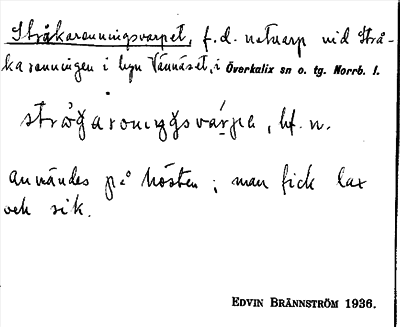 Stråkaronningsvarpet, f.d. notvarp vid Strå-
karonningen i byn Vännäset, i Överkalix sn o. tg. Norrb. l.
strǡgaroniŋgsvárpa, bf. n.
användes på hösten; man fick lax
och sik.
EDVIN BRÄNNSTRÖM 1936.